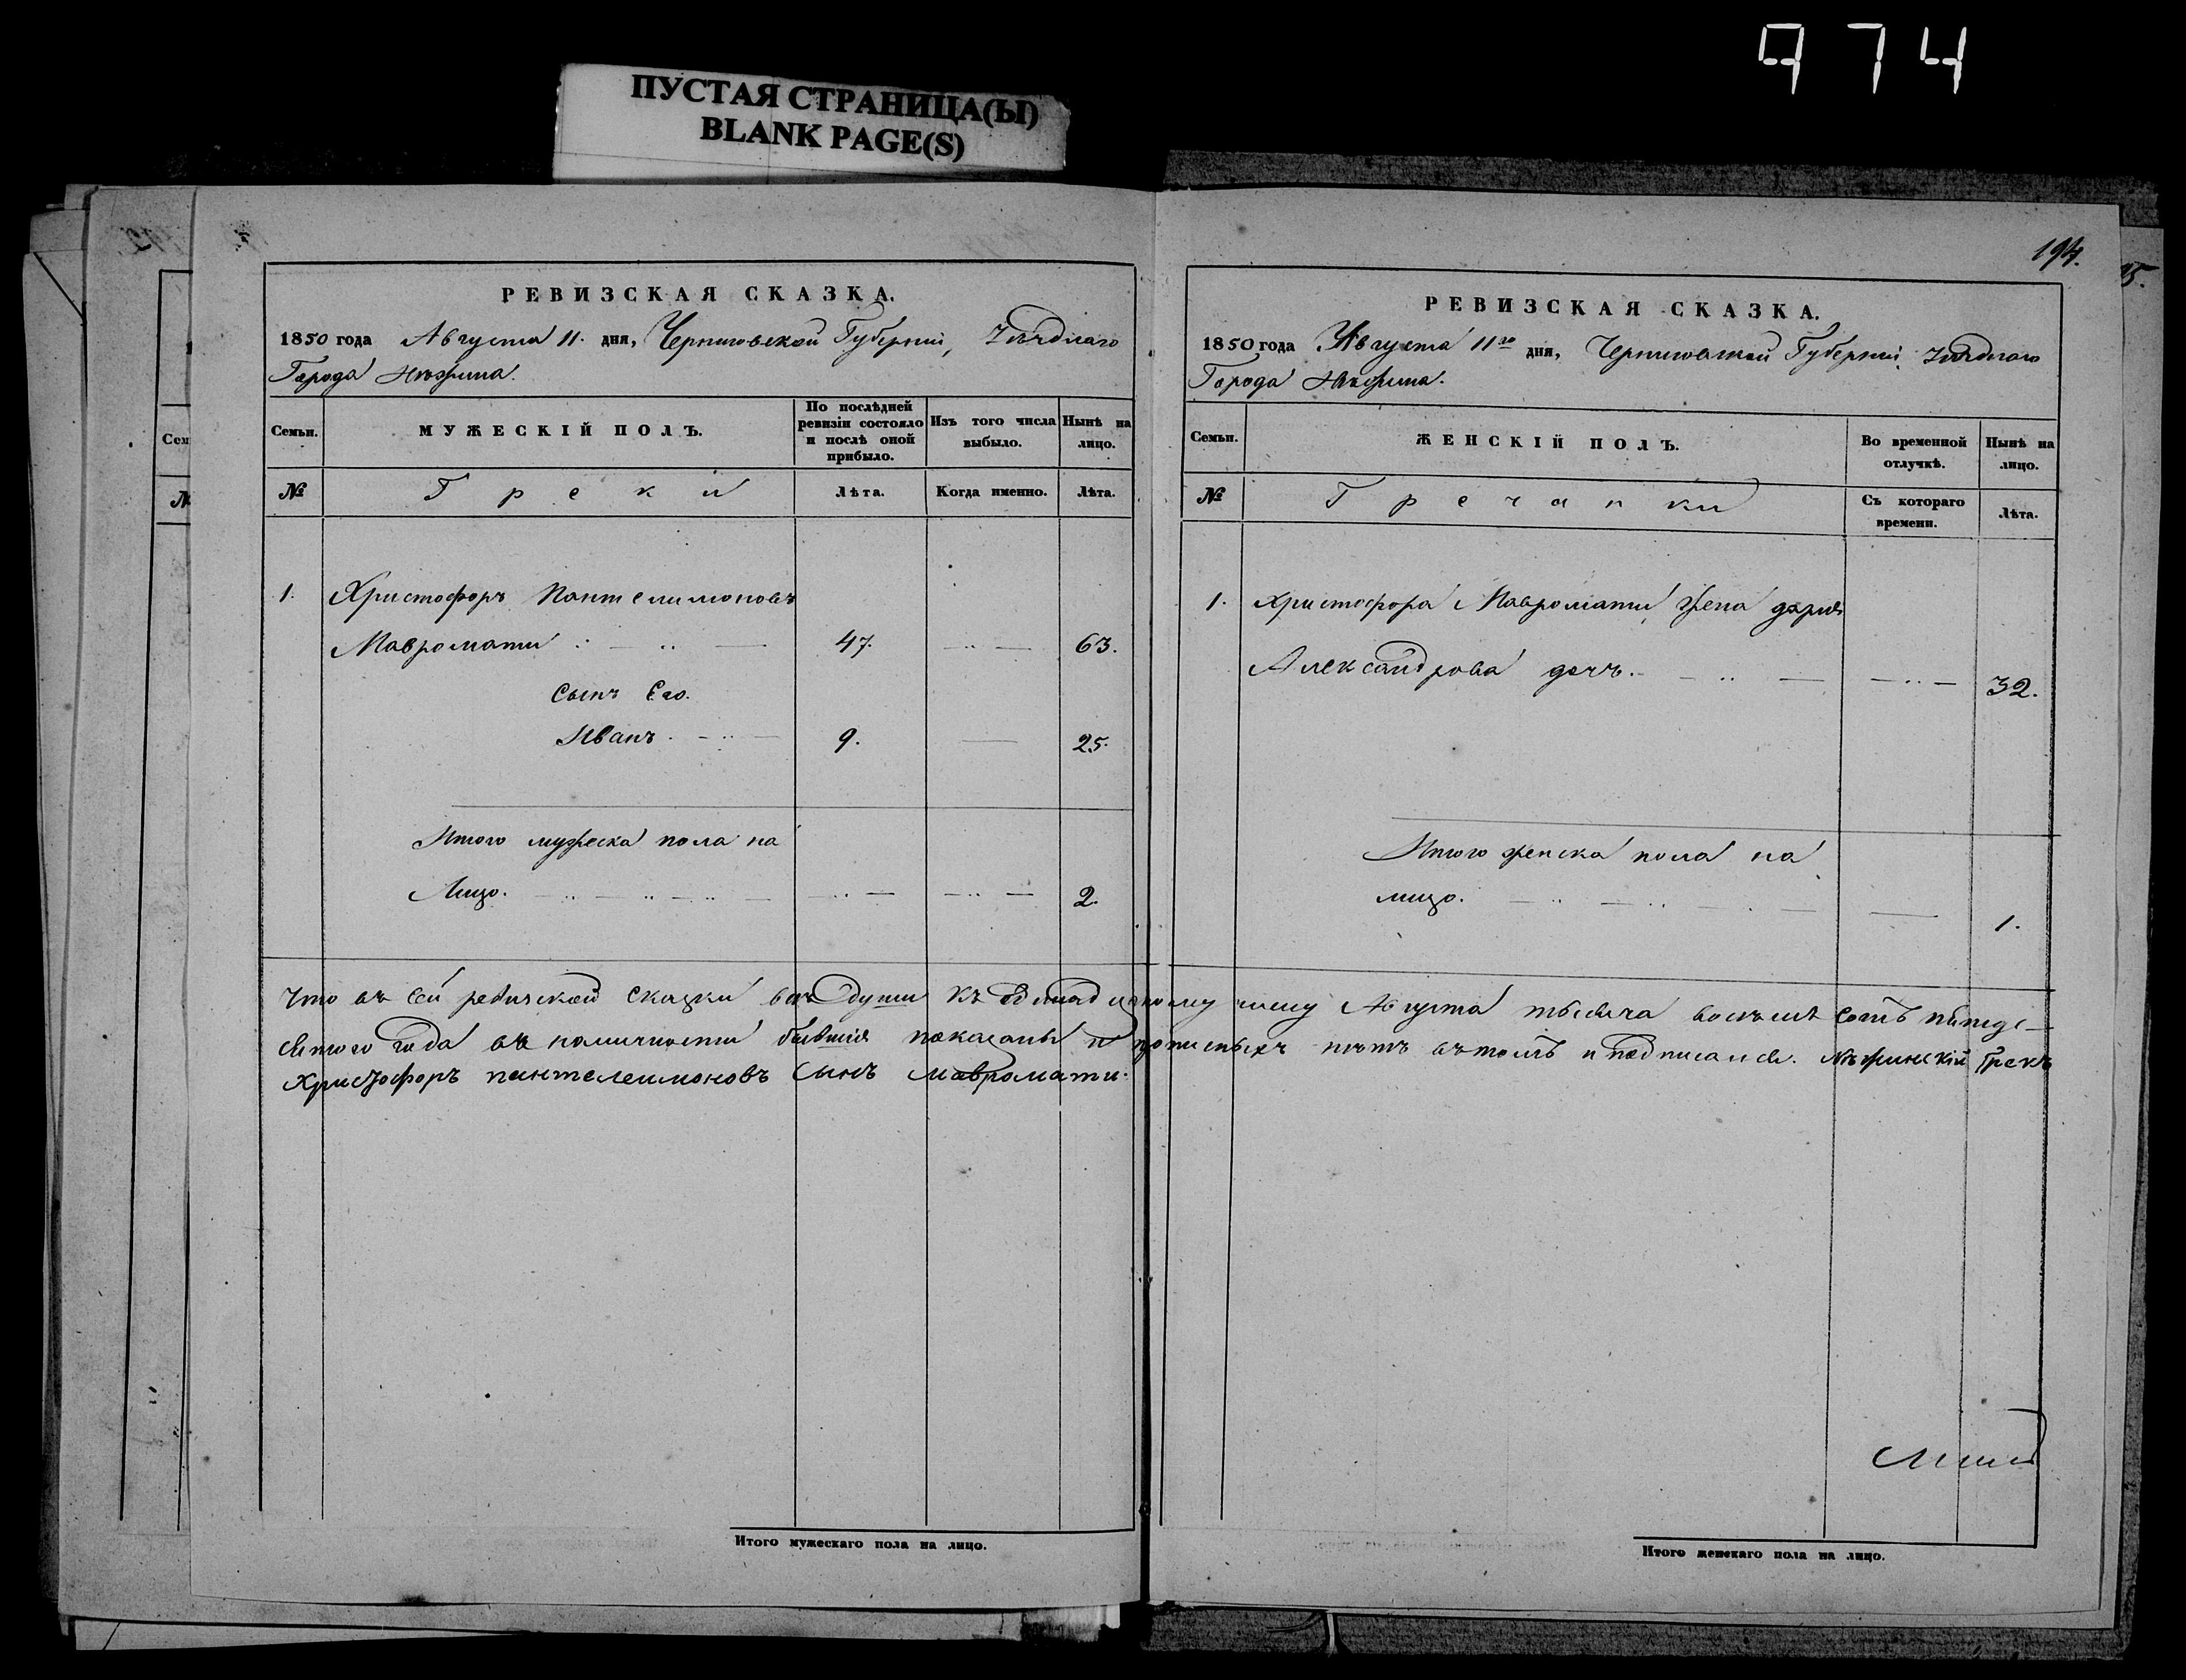 974
ПУСТАЯ СТРАНИЦА(Ы)
BLANK PAGE(S)
РЕВИЗСКАЯ СКАЗКА.
1850 года Августа 11. дня, Черниговской Губерніи, Уѣзднаго
Города Нѣжина.
Семьи.
МУЖЕСКІЙ ПОЛЪ.
По послѣдней ревизіи состояло и послѣ оной прибыло.
Изъ того числа выбыло.
Нынѣ на лицо.
№
Греки
Лѣта.
Когда именно.
Лѣта.
1. Христофоръ Пантелимоновъ
Мавромати 47. 63.
Сынъ Его.
Иванъ. 9. 25.
Итого мужеска пола на
Лицо. 2.
Итого мужескаго пола на лицо.
194.
РЕВИЗСКАЯ СКАЗКА.
1850 года Августа 11го дня, Черниговской Губерніи, Уѣзднаго
Города Нѣжина.
Семьи.
ЖЕНСКІЙ ПОЛЪ.
Во временной отлучкѣ.
Нынѣ на лицо.
№
Гречанки
Съ котораго времени.
Лѣта.
1. Христофора Мавромати, жена дарія
Александрова дочъ. 32.
Итого женска пола на
лицо. 1.
Что въ сей ревизской сказки всѣ души къ Одинадцатому числу Августа тысяча восъмъ сотъ пятде-
сятого года въ наличности бывшія показаны и прописныхъ нѣтъ въ томъ и подписался. Нѣжинскій Грекъ
Христофоръ пантелеимоновъ Сынъ мавромати.
Итого женскаго пола на лицо.
Сем
№
15.